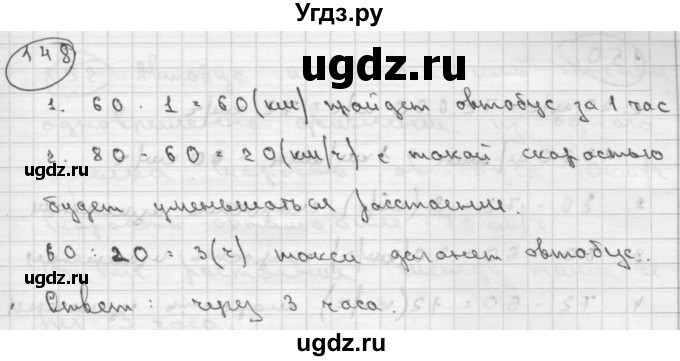 Угдз.ру
148
ugdz.ru ugdz.ru
1. 60 · 1 = 60 (км) пройдет автобус за 1 час
ugdz.ru
2. 80 - 60 = 20 (км/ч) с такой скоростью
ugdz.ru
будет уменьшаться расстояние.
60 : 20 = 3 (ч) такси догонет автобус.
ugdz.ru ugdz.ru
Ответ: через 3 часа.
Угдз.ру